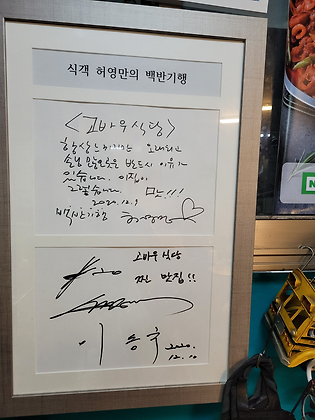 식객 허영만의 백반기행
<고바우식당>
항상 느끼지만 오래되고
손님 많은 곳은 반드시 이유가
있습니다. 이집이
그렇습니다. 맛!!!
2020.12.9
백반기행
고바우 식당
찐 맛집!!
이
2020.
12.10
N